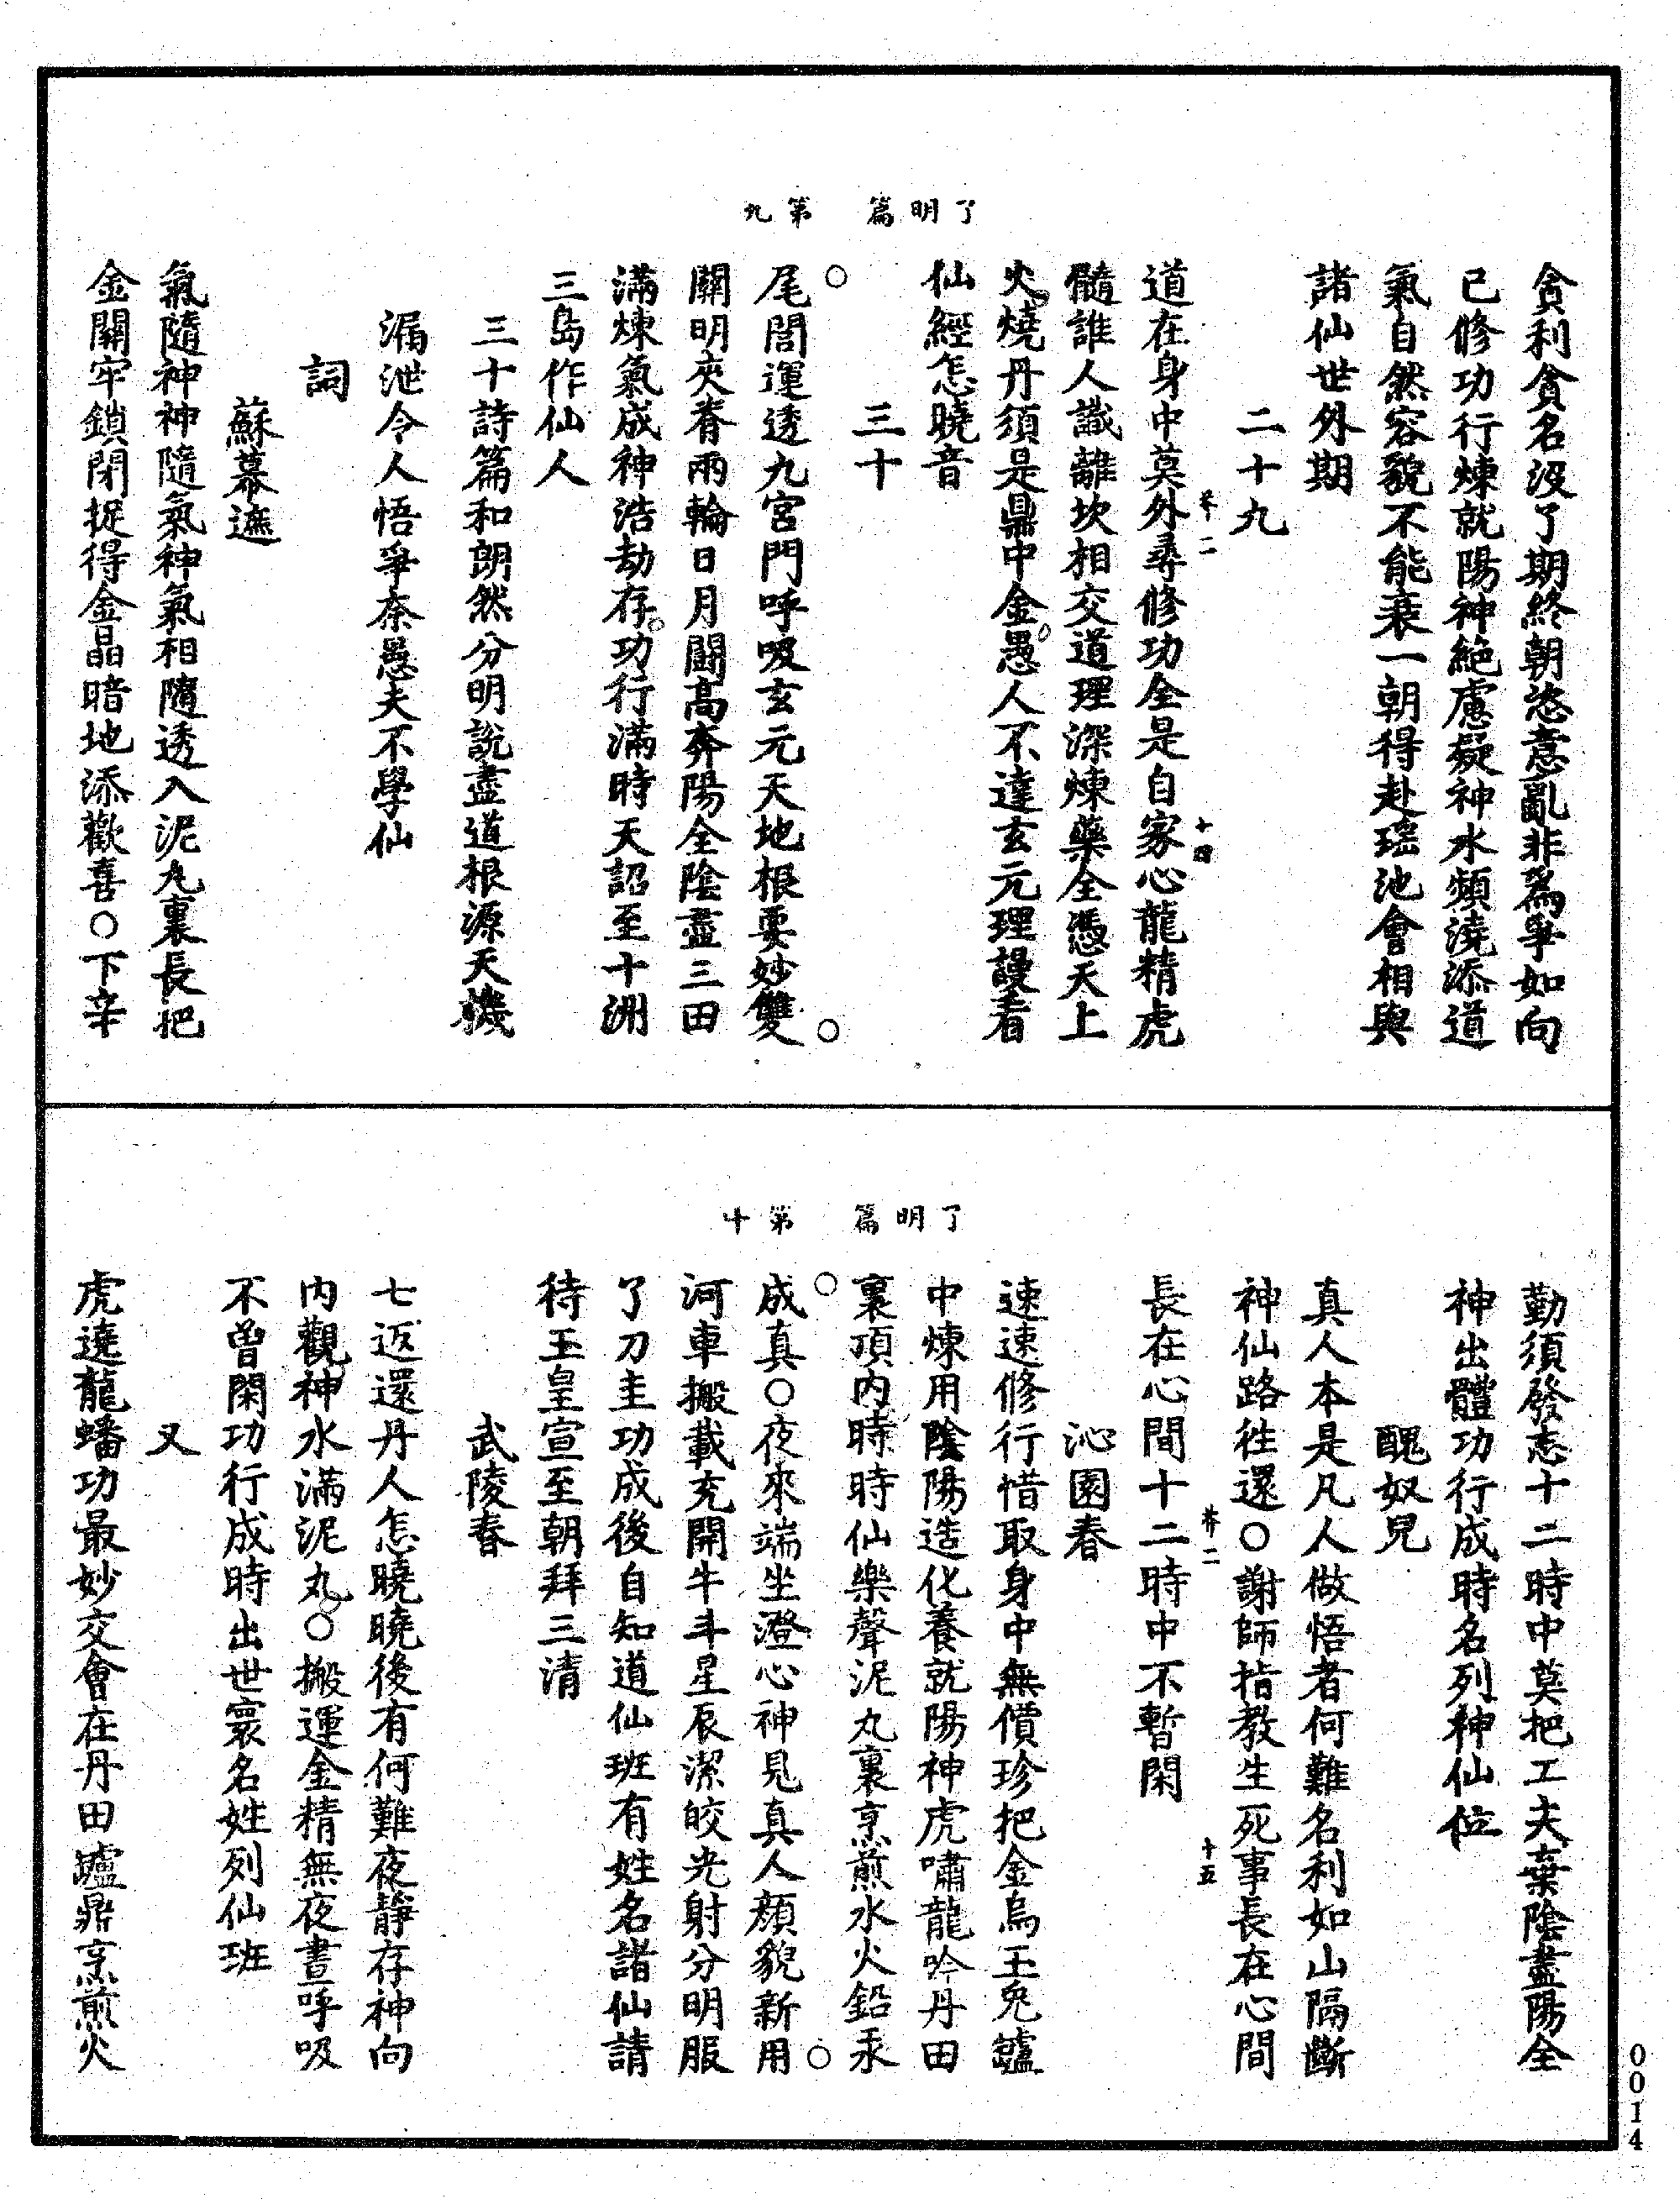 了明篇　第九
貪利貪名沒了期終朝恣意亂非爲爭如向
己修功行煉就陽神絶慮凝神水頻澆添道
氣自然容貌不能衰一朝得赴瑶池會相與
諸仙世外期
二十九
道在身中莫外尋修功全是自家心龍精虎
髓誰人識離坎相交道理深煉藥全憑天上
火燒丹須是鼎中金愚人不達玄元理謾看
仙經怎曉音
三十
尾閭運透九宮門呼吸玄元天地根要妙雙
關明夾脊兩輪日月鬪高奔陽全陰盡三田
滿煉氣成神浩劫存功行滿時天詔至十洲
三島作仙人
三十詩篇和朗然分明說盡道根源天機
漏泄令人悟爭柰愚夫不學仙
詞
蘇幕遮
氣隨神神隨氣神氣相隨透入泥丸裏長把
金關牢鎖閉捉得金晶暗地添歡喜○下辛
了明篇　第十
勤須發志十二時中莫把工夫棄陰盡陽全
神出體功行成時名列神仙位
醜奴兒
真人本是凡人做悟者何難名利如山隔斷
神仙路徃還○謝師指教生死事長在心間
長在心間十二時中不暫閑
沁園春
速速修行惜取身中無價珍把金烏玉兎爐
中煉用陰陽造化養就陽神虎嘯龍吟丹田
裏頂內時時仙樂聲泥丸裏烹煎水火鉛汞
成真○夜來端坐澄心神見真人顏貌新用
河車搬載充開牛斗星辰潔皎光射分明服
了刀圭功成後自知道仙班有姓名諸仙請
待玉皇宣至朝拜三清
武陵春
七返還丹人怎曉曉後有何難夜靜存神向
內觀神水滿泥丸○搬運金精無夜晝呼吸
不曾閑功行成時出世寰名姓列仙班
又
虎遶龍蟠功最妙交會在丹田爐鼎烹煎火
0014